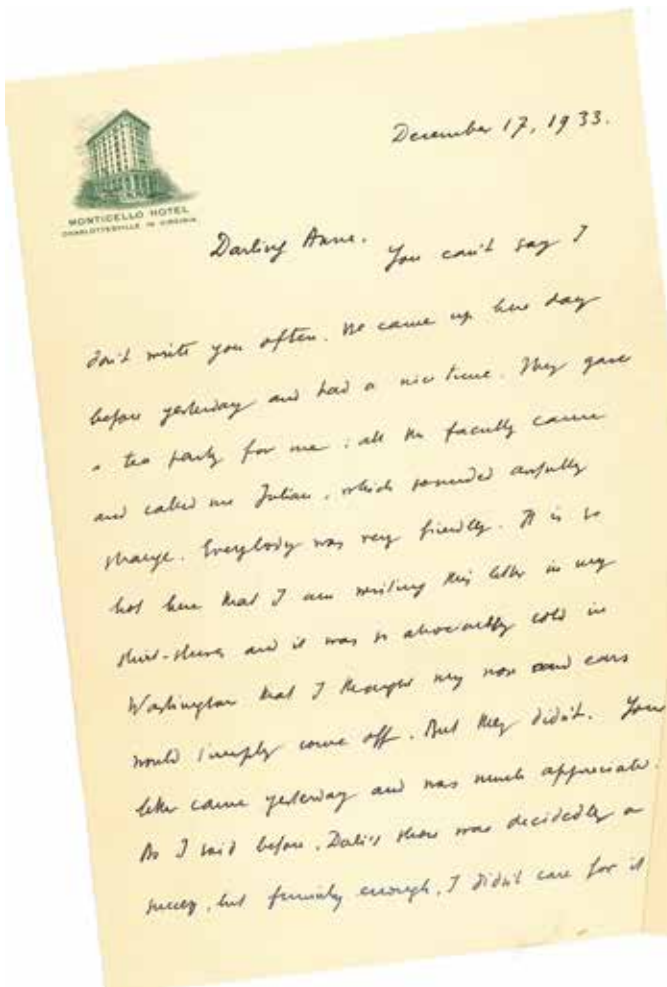 December 17, 1933.
MONTICELLO HOTEL
CHARLOTTESVILLE IN VIRGINIA
Darling Anne. You can't say I
don't write you often. We came up here day
before yesterday and had a nice time. They gave
a tea party for me; all the faculty came
and called me Julian, which sounded awfully
strange. Everybody was very friendly. It is so
hot here that I am writing this letter in my
shirt-sleeves and it was so atrociously cold in
Washington that I thought my nose and ears
would simply come off. But they didn't. Your
letter came yesterday and was much appreciated.
As I said before, Dali's show was decidedly a
success, but funnily enough, I didn't care for it